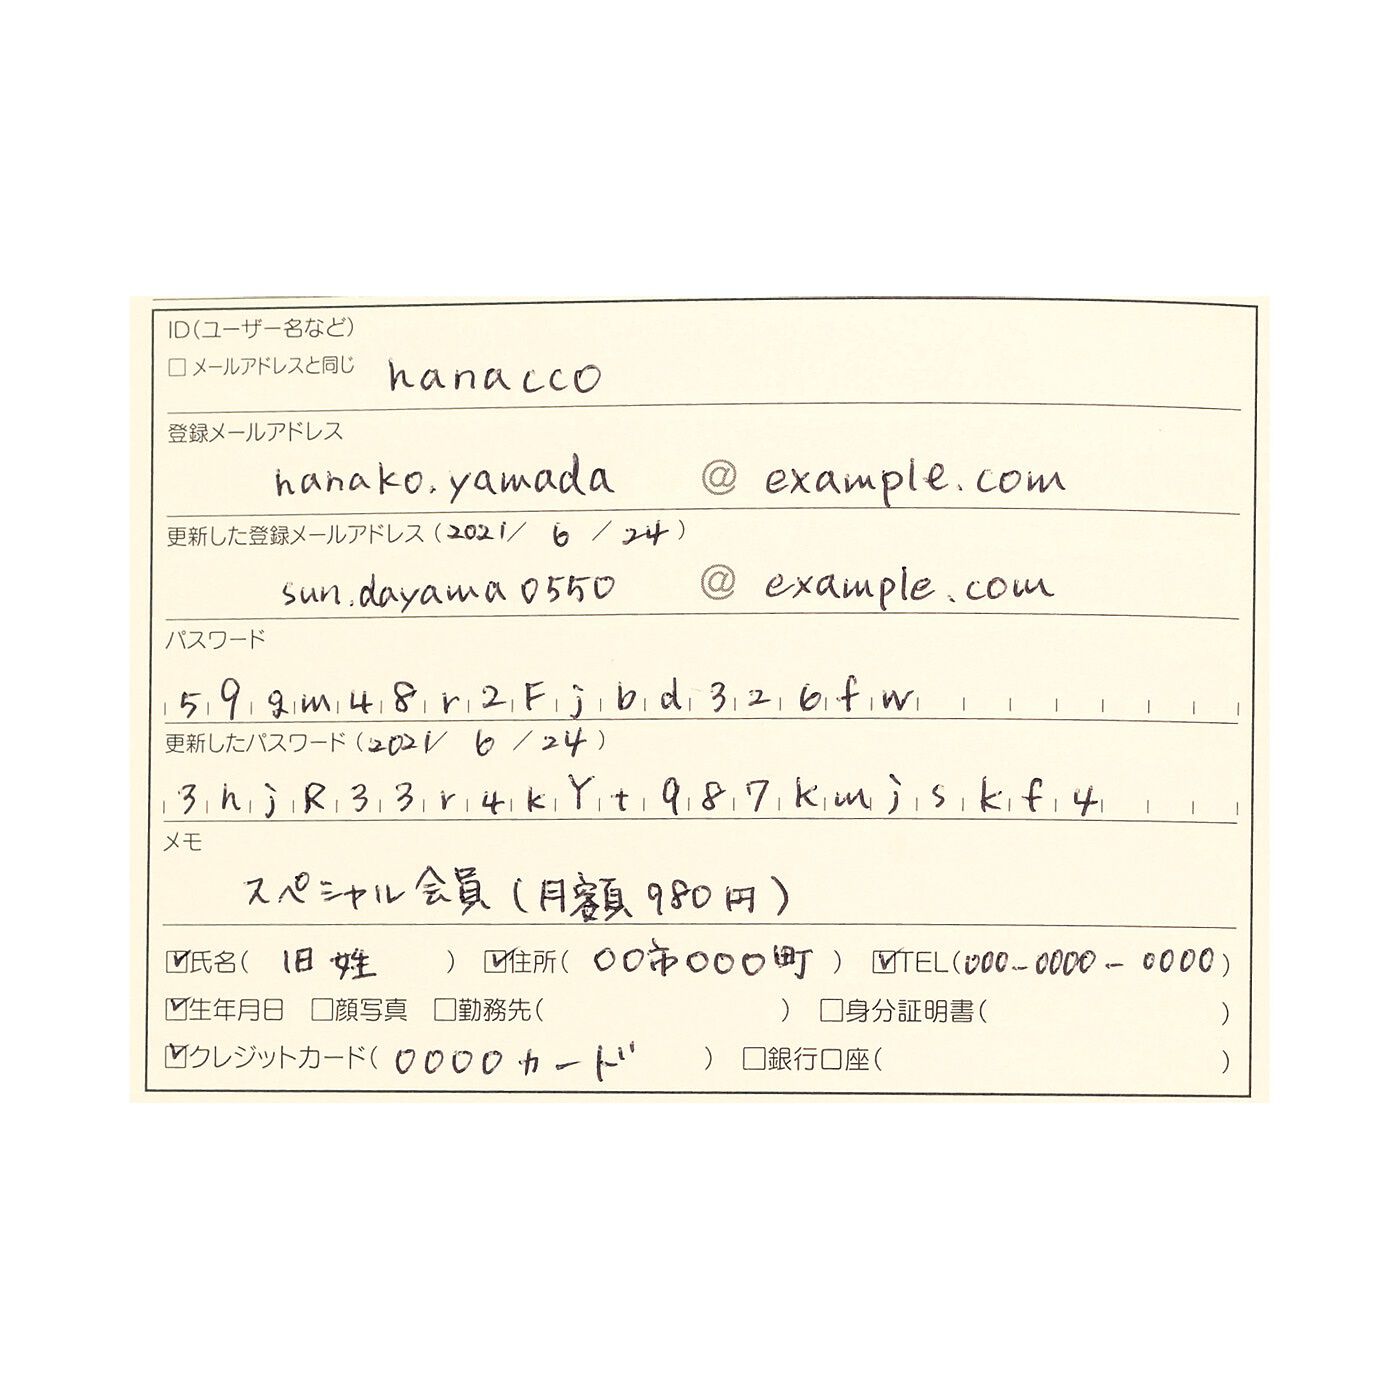 ID(ユーザー名など)
□ メールアドレスと同じ hanacco
登録メールアドレス
hanako.yamada @ example.com
更新した登録メールアドレス (2021/ 6 / 24 )
sun.dayama0550 @ example.com
パスワード
59gm48r2Fjbd326fw
更新したパスワード (2021/ 6 / 24 )
3hjR33r4kYt987kmjskf4
メモ
スペシャル会員 (月額 980円)
☑氏名( 旧姓 ) ☑住所( 〇〇市〇〇〇町 ) ☑TEL(000-0000-0000)
☑生年月日 □顔写真 □勤務先( ) □身分証明書( )
☑クレジットカード( 〇〇〇〇カード ) □銀行口座( )